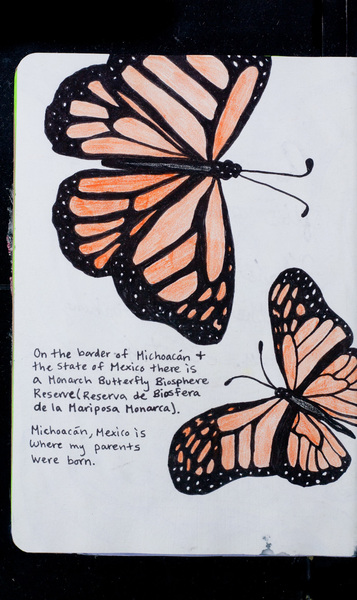 On the border of Michoacán +
the State of Mexico there is
a Monarch Butterfly Biosphere
Reserve (Reserva de Biosfera
de la Mariposa Monarca).
Michoacán, Mexico is
where my parents
were born.